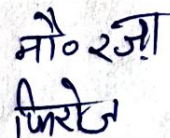 मौ० रज़ा
फिरोज